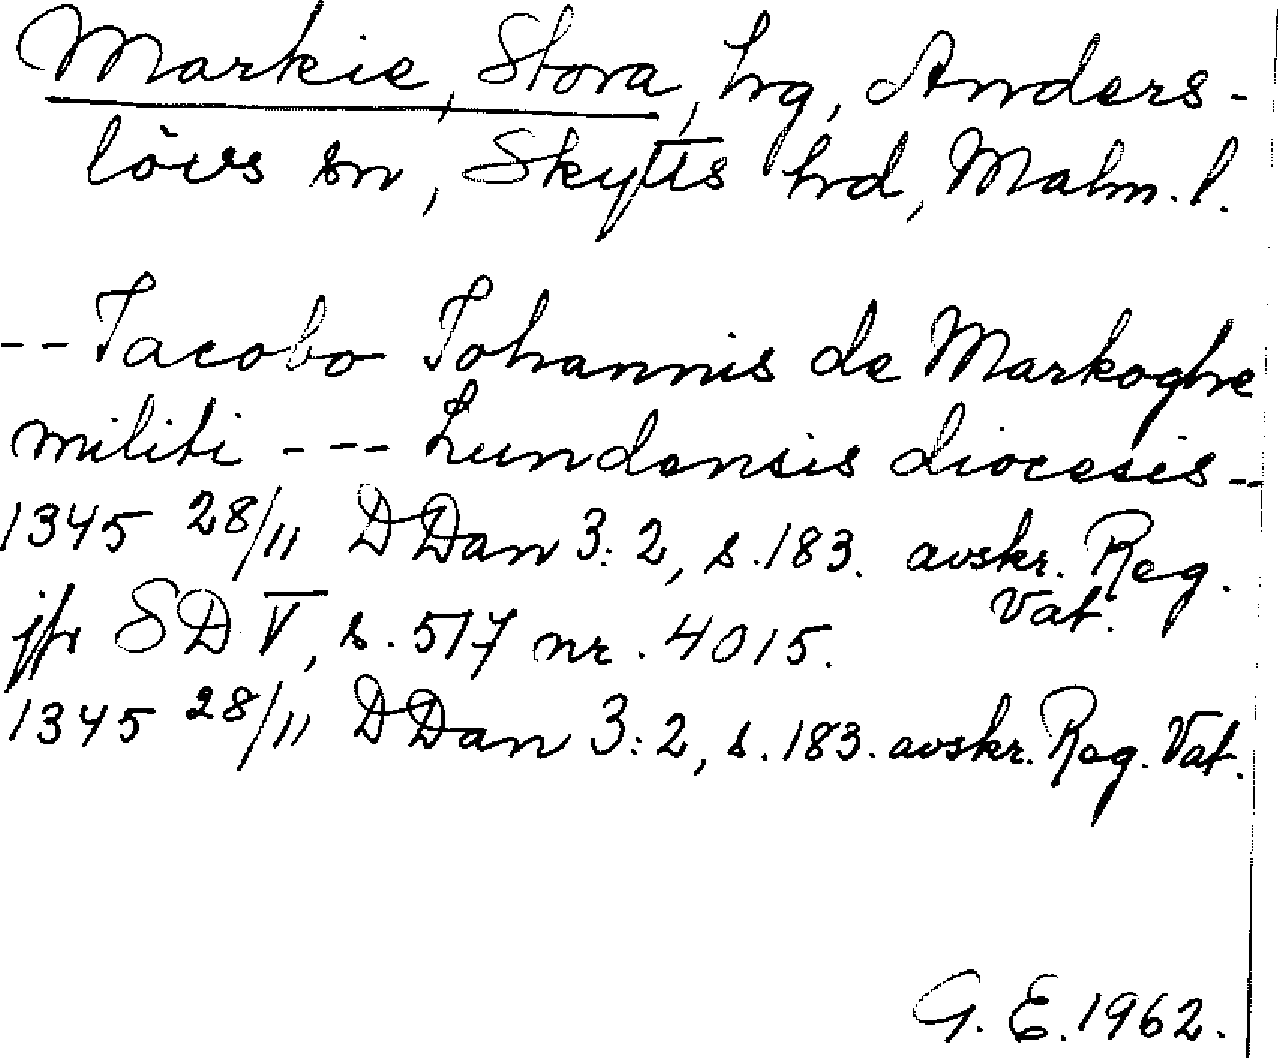 Markie, Stora, hg, Anders-
lövs sn, Skytts hd, Malm. l.
-- Jacobo Johannis de Markoghe
militi --- Lundensis diocesis --
1345 28/11 DDan 3:2, s. 183. avskr. Reg.
Vat.
jfr SD V, s. 517 nr. 4015.
1345 28/11 DDan 3:2, s. 183. avskr. Reg. Vat.
G. E. 1962.